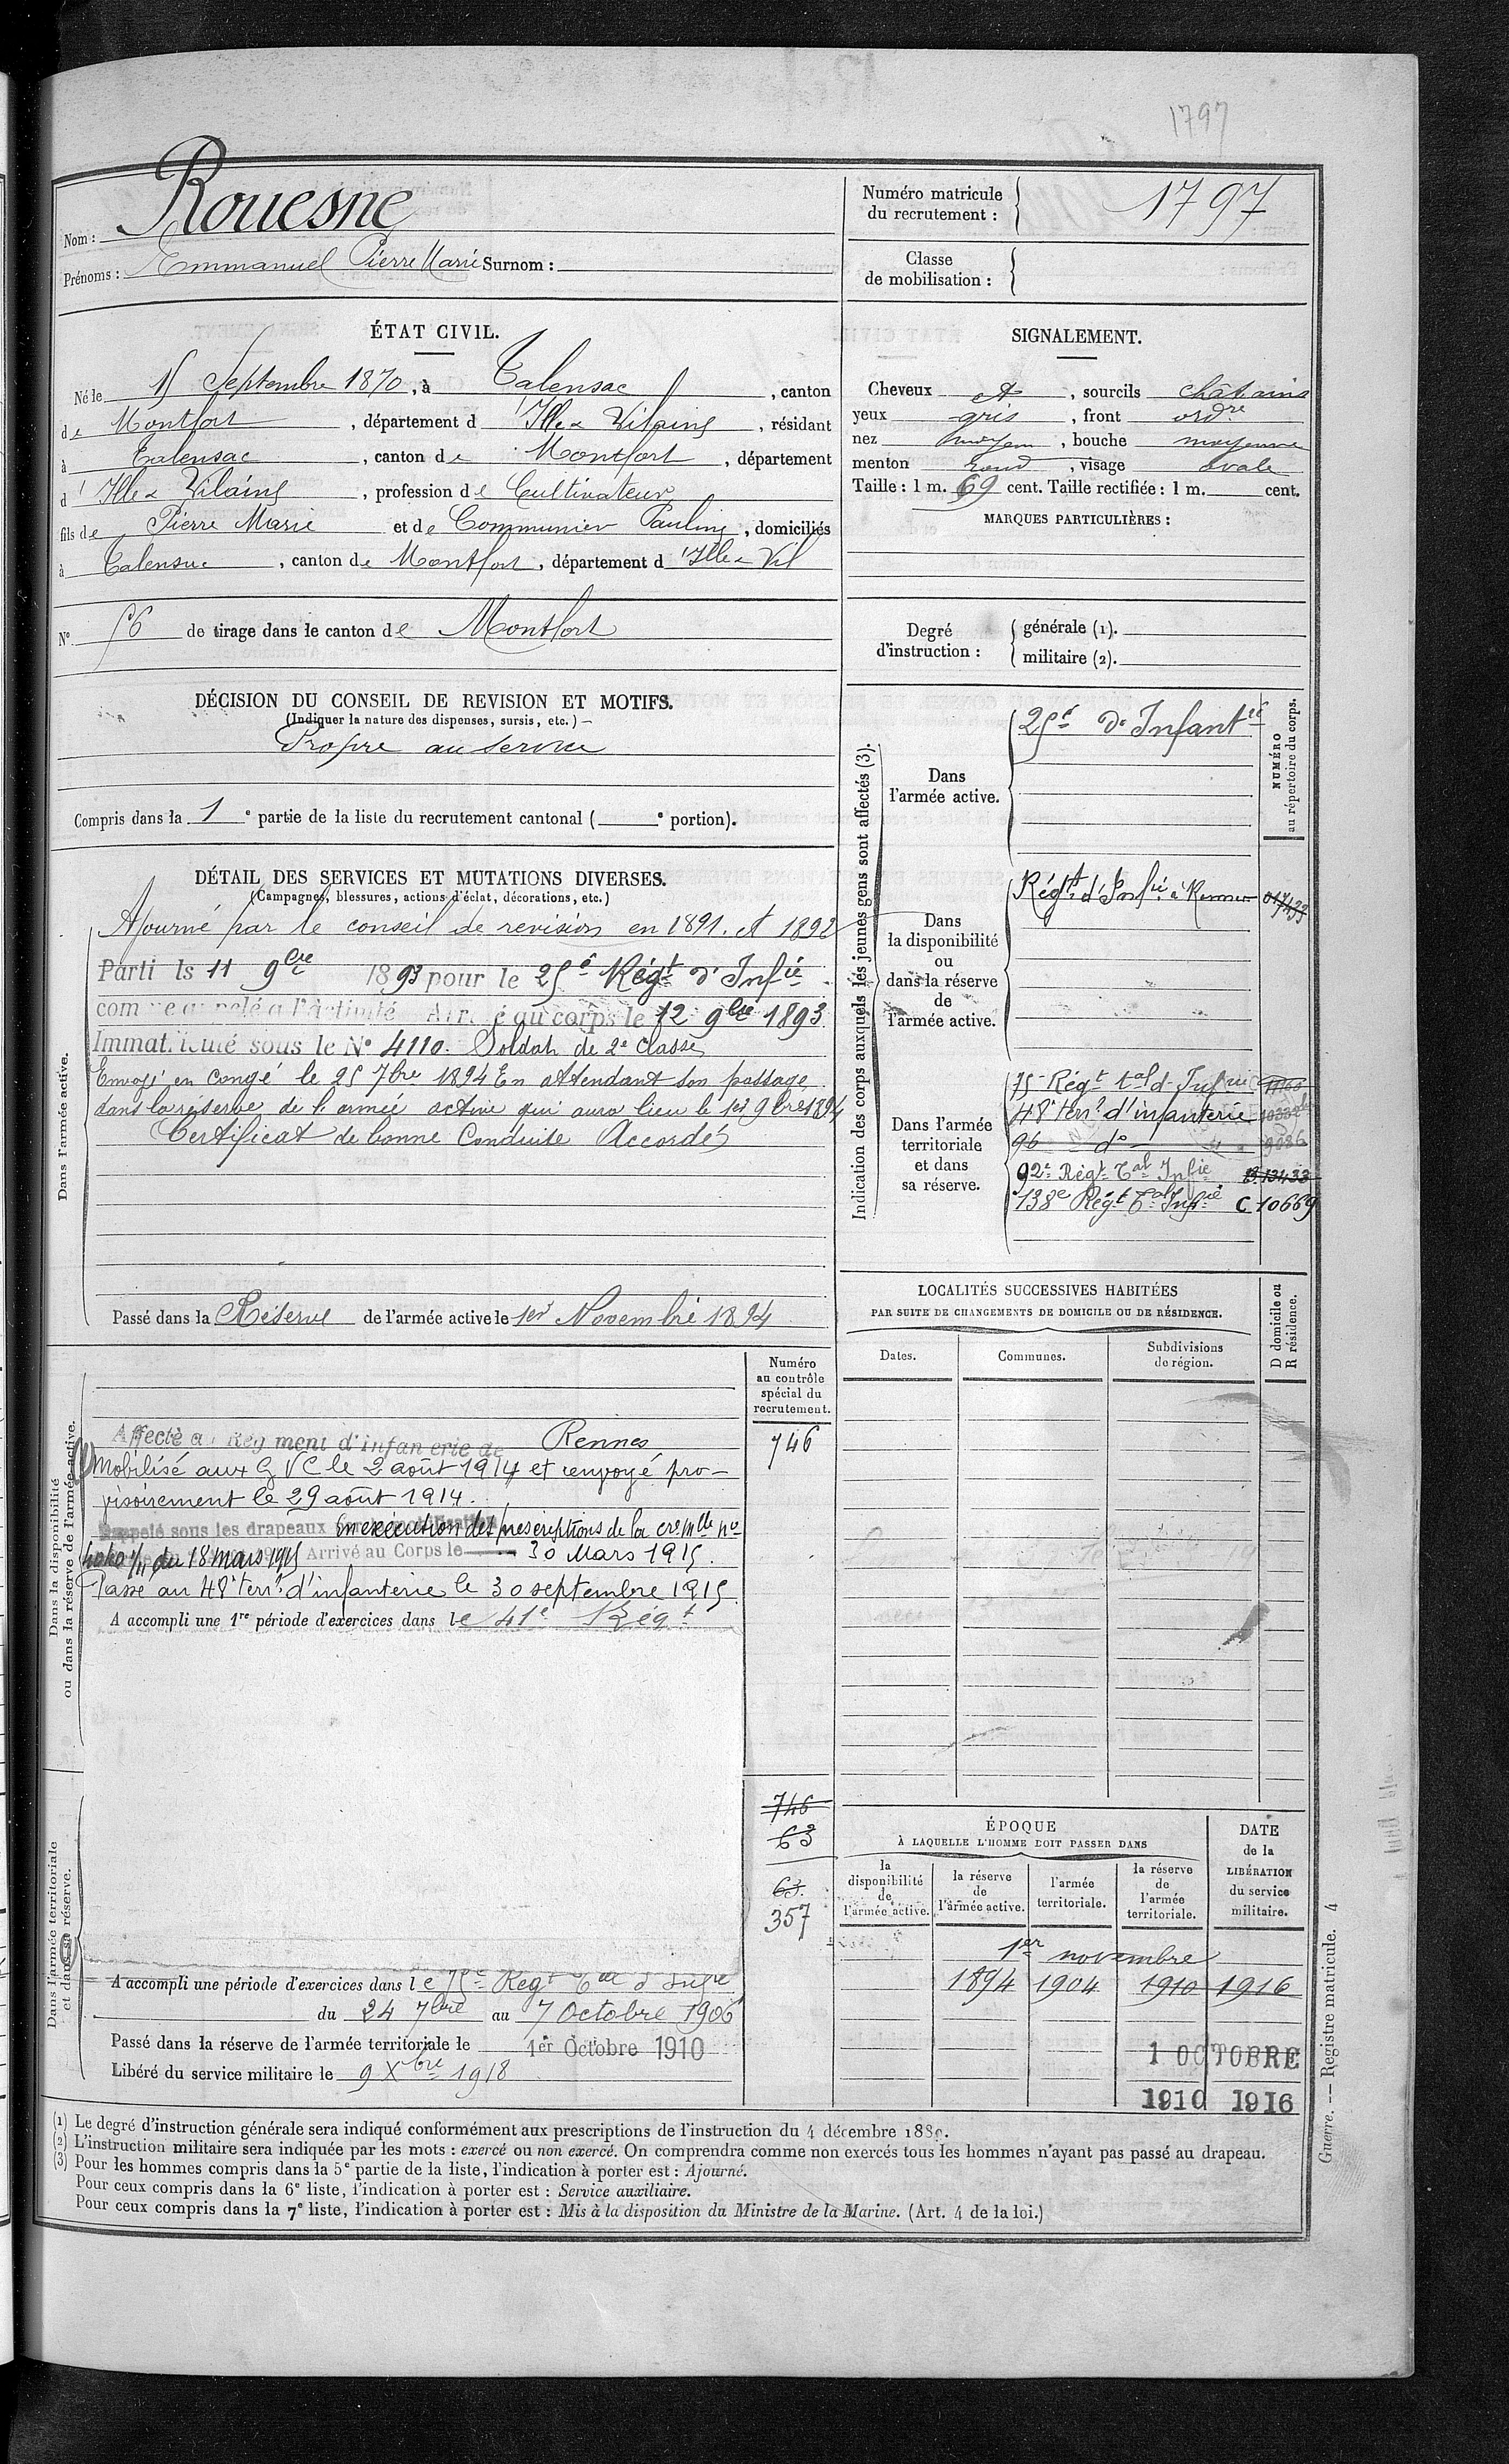 1797
Nom : Rouesne
Prénoms : Emmanuel Pierre Marie Surnom :
Numéro matricule du recrutement : 1797
Classe de mobilisation :
ÉTAT CIVIL.
Né le 15 Septembre 1870, à Talensac, canton
de Montfort, département d'Ille & Vilaine, résidant
à Talensac, canton de Montfort, département
d'Ille & Vilaine, profession de Cultivateur
fils de Pierre Marie et de Communier Pauline, domiciliés
à Talensac, canton de Montfort, département d'Ille & Vil
N° 56 de tirage dans le canton de Montfort
SIGNALEMENT.
Cheveux et, sourcils châtains
yeux gris, front ordre
nez moyen, bouche moyenne
menton rond, visage ovale
Taille : 1 m. 69 cent. Taille rectifiée : 1 m. cent.
MARQUES PARTICULIÈRES :
Degré d'instruction :
générale (1).
militaire (2).
DÉCISION DU CONSEIL DE REVISION ET MOTIFS.
(Indiquer la nature des dispenses, sursis, etc.)
Propre au service
Compris dans la 1e partie de la liste du recrutement cantonal ( e portion).
DÉTAIL DES SERVICES ET MUTATIONS DIVERSES.
(Campagnes, blessures, actions d'éclat, décorations, etc.)
Dans l'armée active.
Ajourné par le conseil de revision en 1891. et 1892
Parti le 11 9bre 1893 pour le 25e Régt d'Infie
comme appelé à l'activité Arrivé au corps le 12 9bre 1893
Immatriculé sous le N° 4110. Soldat de 2e classe
Envoyé en congé le 25 7bre 1894 En attendant son passage
dans la réserve de l'armée active qui aura lieu le 1er 9bre 1894
Certificat de bonne Conduite Accordé
Passé dans la Réserve de l'armée active le 1er Novembre 1894
Indication des corps auxquels les jeunes gens sont affectés (3).
NUMÉRO au répertoire du corps.
Dans l'armée active.
25e d'Infantie
Dans la disponibilité ou dans la réserve de l'armée active.
Régt d'Infie à Rennes
Dans l'armée territoriale et dans sa réserve.
75e Régt tal d'Infie
48e terr! d'infanterie
96 do 9086
92e Régt Tal Infie B. 13433
138e Régt Tal Infie C 10669
LOCALITÉS SUCCESSIVES HABITÉES
PAR SUITE DE CHANGEMENTS DE DOMICILE OU DE RÉSIDENCE.
Dates. Communes. Subdivisions de région. D domicile ou R résidence.
Dans la disponibilité ou dans la réserve de l'armée active.
Numéro au contrôle spécial du recrutement.
746
Affecté au Régiment d'infanterie de Rennes
Mobilisé aux G V C le 2 août 1914 et renvoyé pro-
visoirement le 29 août 1914.
Rappelé sous les drapeaux En exécution des prescriptions de la cre mlle no
4040 1/11 du 18 mars 1915 Arrivé au Corps le 30 Mars 1915.
Passé au 48e terr! d'infanterie le 30 septembre 1915.
A accompli une 1re période d'exercices dans le 41e Régt
Dans l'armée territoriale et dans sa réserve.
746
63
63.
357
A accompli une période d'exercices dans le 75e Régt Tal d'Infie
du 24 7bre au 7 Octobre 1906
Passé dans la réserve de l'armée territoriale le 1er Octobre 1910
Libéré du service militaire le 9 Xbre 1918
ÉPOQUE
À LAQUELLE L'HOMME DOIT PASSER DANS
la disponibilité de l'armée active.
la réserve de l'armée active.
l'armée territoriale.
la réserve de l'armée territoriale.
DATE de la LIBÉRATION du service militaire.
1er novembre
1894 1904 1910 1916
1 OCTOBRE
1910 1916
(1) Le degré d'instruction générale sera indiqué conformément aux prescriptions de l'instruction du 4 décembre 1889.
(2) L'instruction militaire sera indiquée par les mots : exercé ou non exercé. On comprendra comme non exercés tous les hommes n'ayant pas passé au drapeau.
(3) Pour les hommes compris dans la 5e partie de la liste, l'indication à porter est : Ajourné.
Pour ceux compris dans la 6e liste, l'indication à porter est : Service auxiliaire.
Pour ceux compris dans la 7e liste, l'indication à porter est : Mis à la disposition du Ministre de la Marine. (Art. 4 de la loi.)
Guerre. — Registre matricule. 4